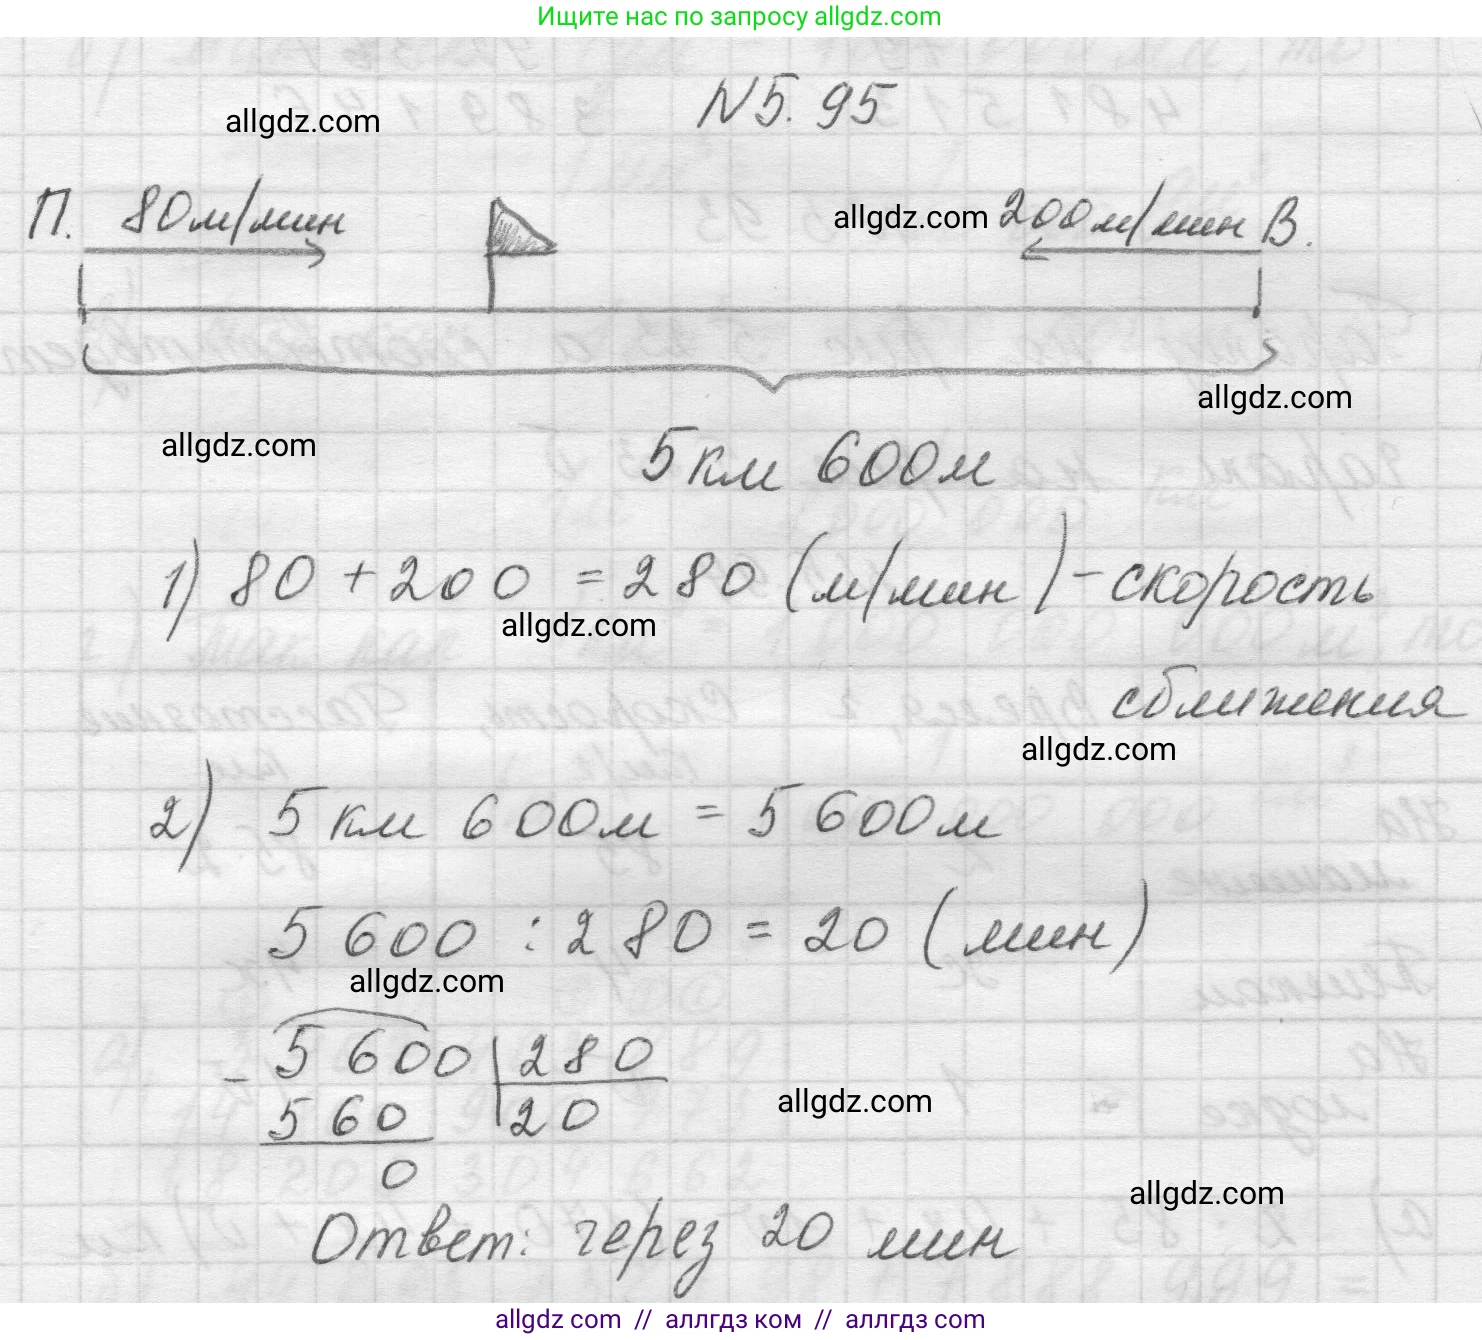 Ищите нас по запросу allgdz.com
allgdz.com
N5.95
П. 80м/мин
allgdz.com 200м/мин В.
allgdz.com
allgdz.com
5км 600м
1) 80 + 200 = 280 (м/мин) - скорость
allgdz.com
сближения
allgdz.com
2) 5 км 600м = 5 600м
5 600 : 280 = 20 (мин)
allgdz.com
- 5 600 280
560 20
allgdz.com
0
allgdz.com
Ответ: через 20 мин
allgdz.com // аллгдз ком // аллгдз.com